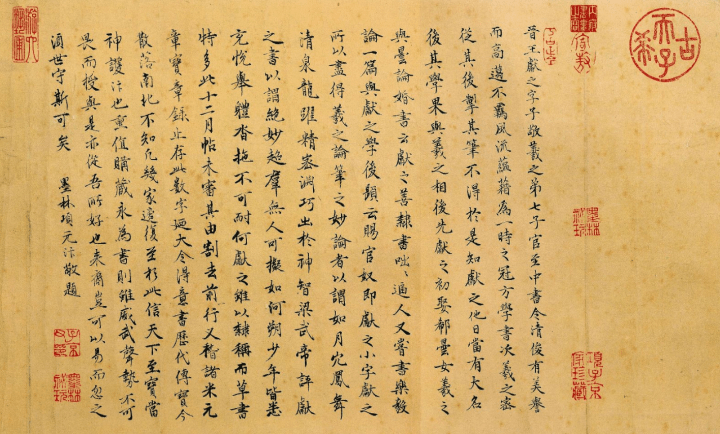 古希天子
墨林秘玩
項子京家珍藏
晉王獻之字子敬羲之第七子官至中書令清俊有美譽
而高邁不羈風流蘊藉為一時之冠方學書次羲之密
從其後掣其筆不得於是知獻之他日當有大名
後其學果與羲之相後先獻之初娶郗曇女羲之
與曇論婚書云獻之善隸書咄〻逼人又嘗書樂毅
論一篇與獻之學後題云賜官奴即獻之小字獻之
所以盡得羲之論筆之妙論者以謂如丹穴鳳舞
清泉龍躍精密淵巧出於神智梁武帝評獻
之書以謂絕妙超羣無人可擬如河朔少年皆悉
充悅舉體沓拖不可耐何獻之雖以隸稱而草書
特多此十二月帖未審其由割去前行又稽諸米元
章寶章錄止存此數字迺大令得意書歷代傳寶今
散落南北不知凡幾家遺復至於此信天下至寶當
神護持也重值購藏永為書則雖威武聲勢不可
畏而授與是亦從吾所好也來裔豈可以易而忽之
須世守斯可矣 墨林項元汴敬題
子京父印
墨林秘玩